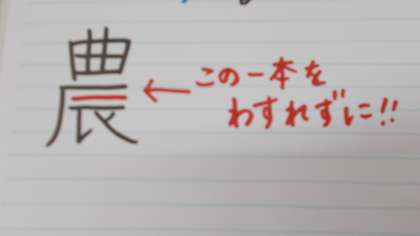 農
この一本を
わすれずに!!